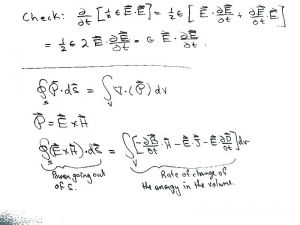 Check: ∂/∂t [½ ϵ E⃗·E⃗] = ½ ϵ [E⃗·∂E⃗/∂t + ∂E⃗/∂t·E⃗]
= ½ ϵ 2 E⃗·∂E⃗/∂t = ϵ E⃗·∂E⃗/∂t.
∮_S P⃗·ds⃗ = ∫_V ∇·(P⃗) dv
P⃗ = E⃗×H⃗
∮_S (E⃗×H⃗)·ds⃗ = ∫_V [-∂B⃗/∂t·H⃗ - E⃗·J⃗ - E⃗·∂D⃗/∂t] dv
Power going out of S.
Rate of change of the energy in the volume.